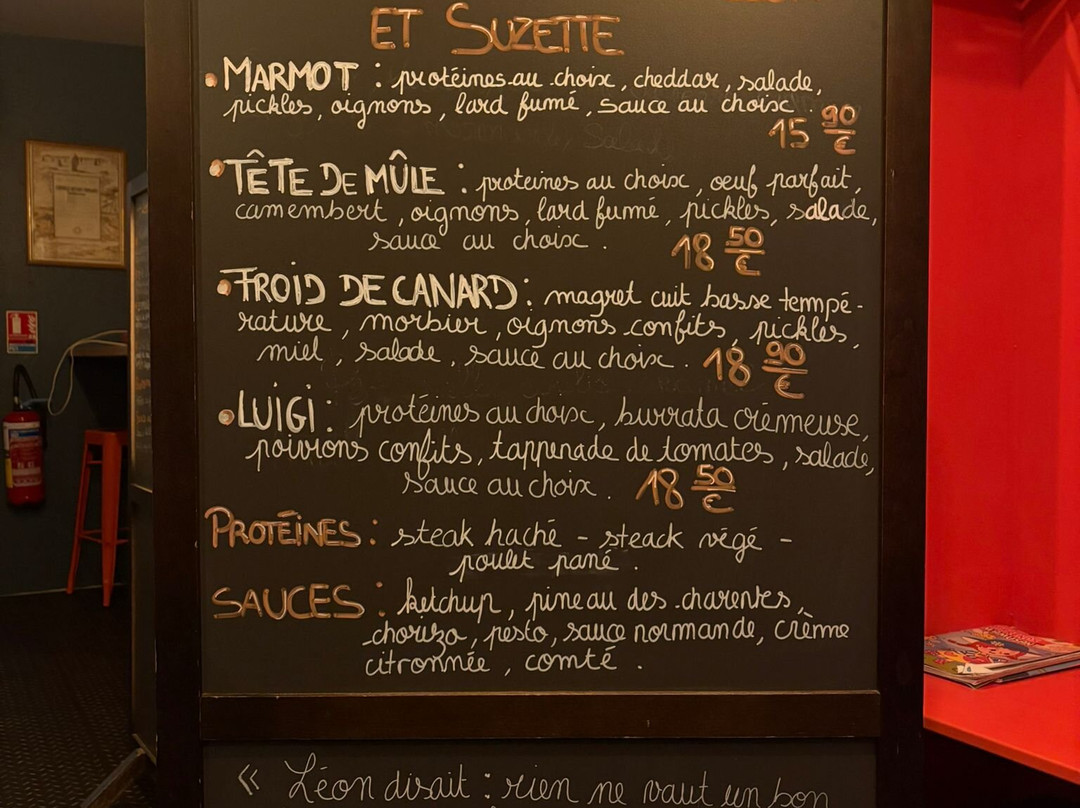 ET SUZETTE
• MARMOT : protéines au choix, cheddar, salade,
pickles, oignons, lard fumé, sauce au choix.
15 90 €
• TÊTE DE MÛLE : proteines au choix, oeuf parfait,
camembert, oignons, lard fumé, pickles, salade,
sauce au choix. 18 50 €
• FROID DE CANARD : magret cuit basse tempé-
rature, morbier, oignons confits, pickles,
miel, salade, sauce au choix. 18 90 €
• LUIGI : protéines au choix, burrata crèmeuse,
poivrons confits, tappenade de tomates, salade,
sauce au choix. 18 50 €
PROTÉINES : steak haché - steack végé -
poulet pané.
SAUCES : ketchup, pineau des charentes,
chorizo, pesto, sauce normande, crème
citronnée, comté.
« Léon disait : rien ne vaut un bon